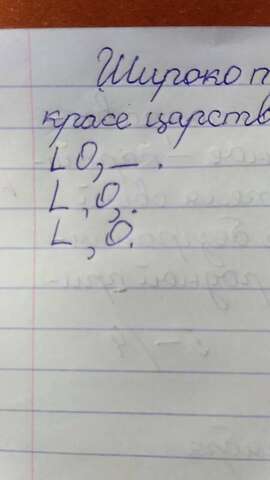 Широко п
красе царств
L O, — .
L , O, .
L , O.